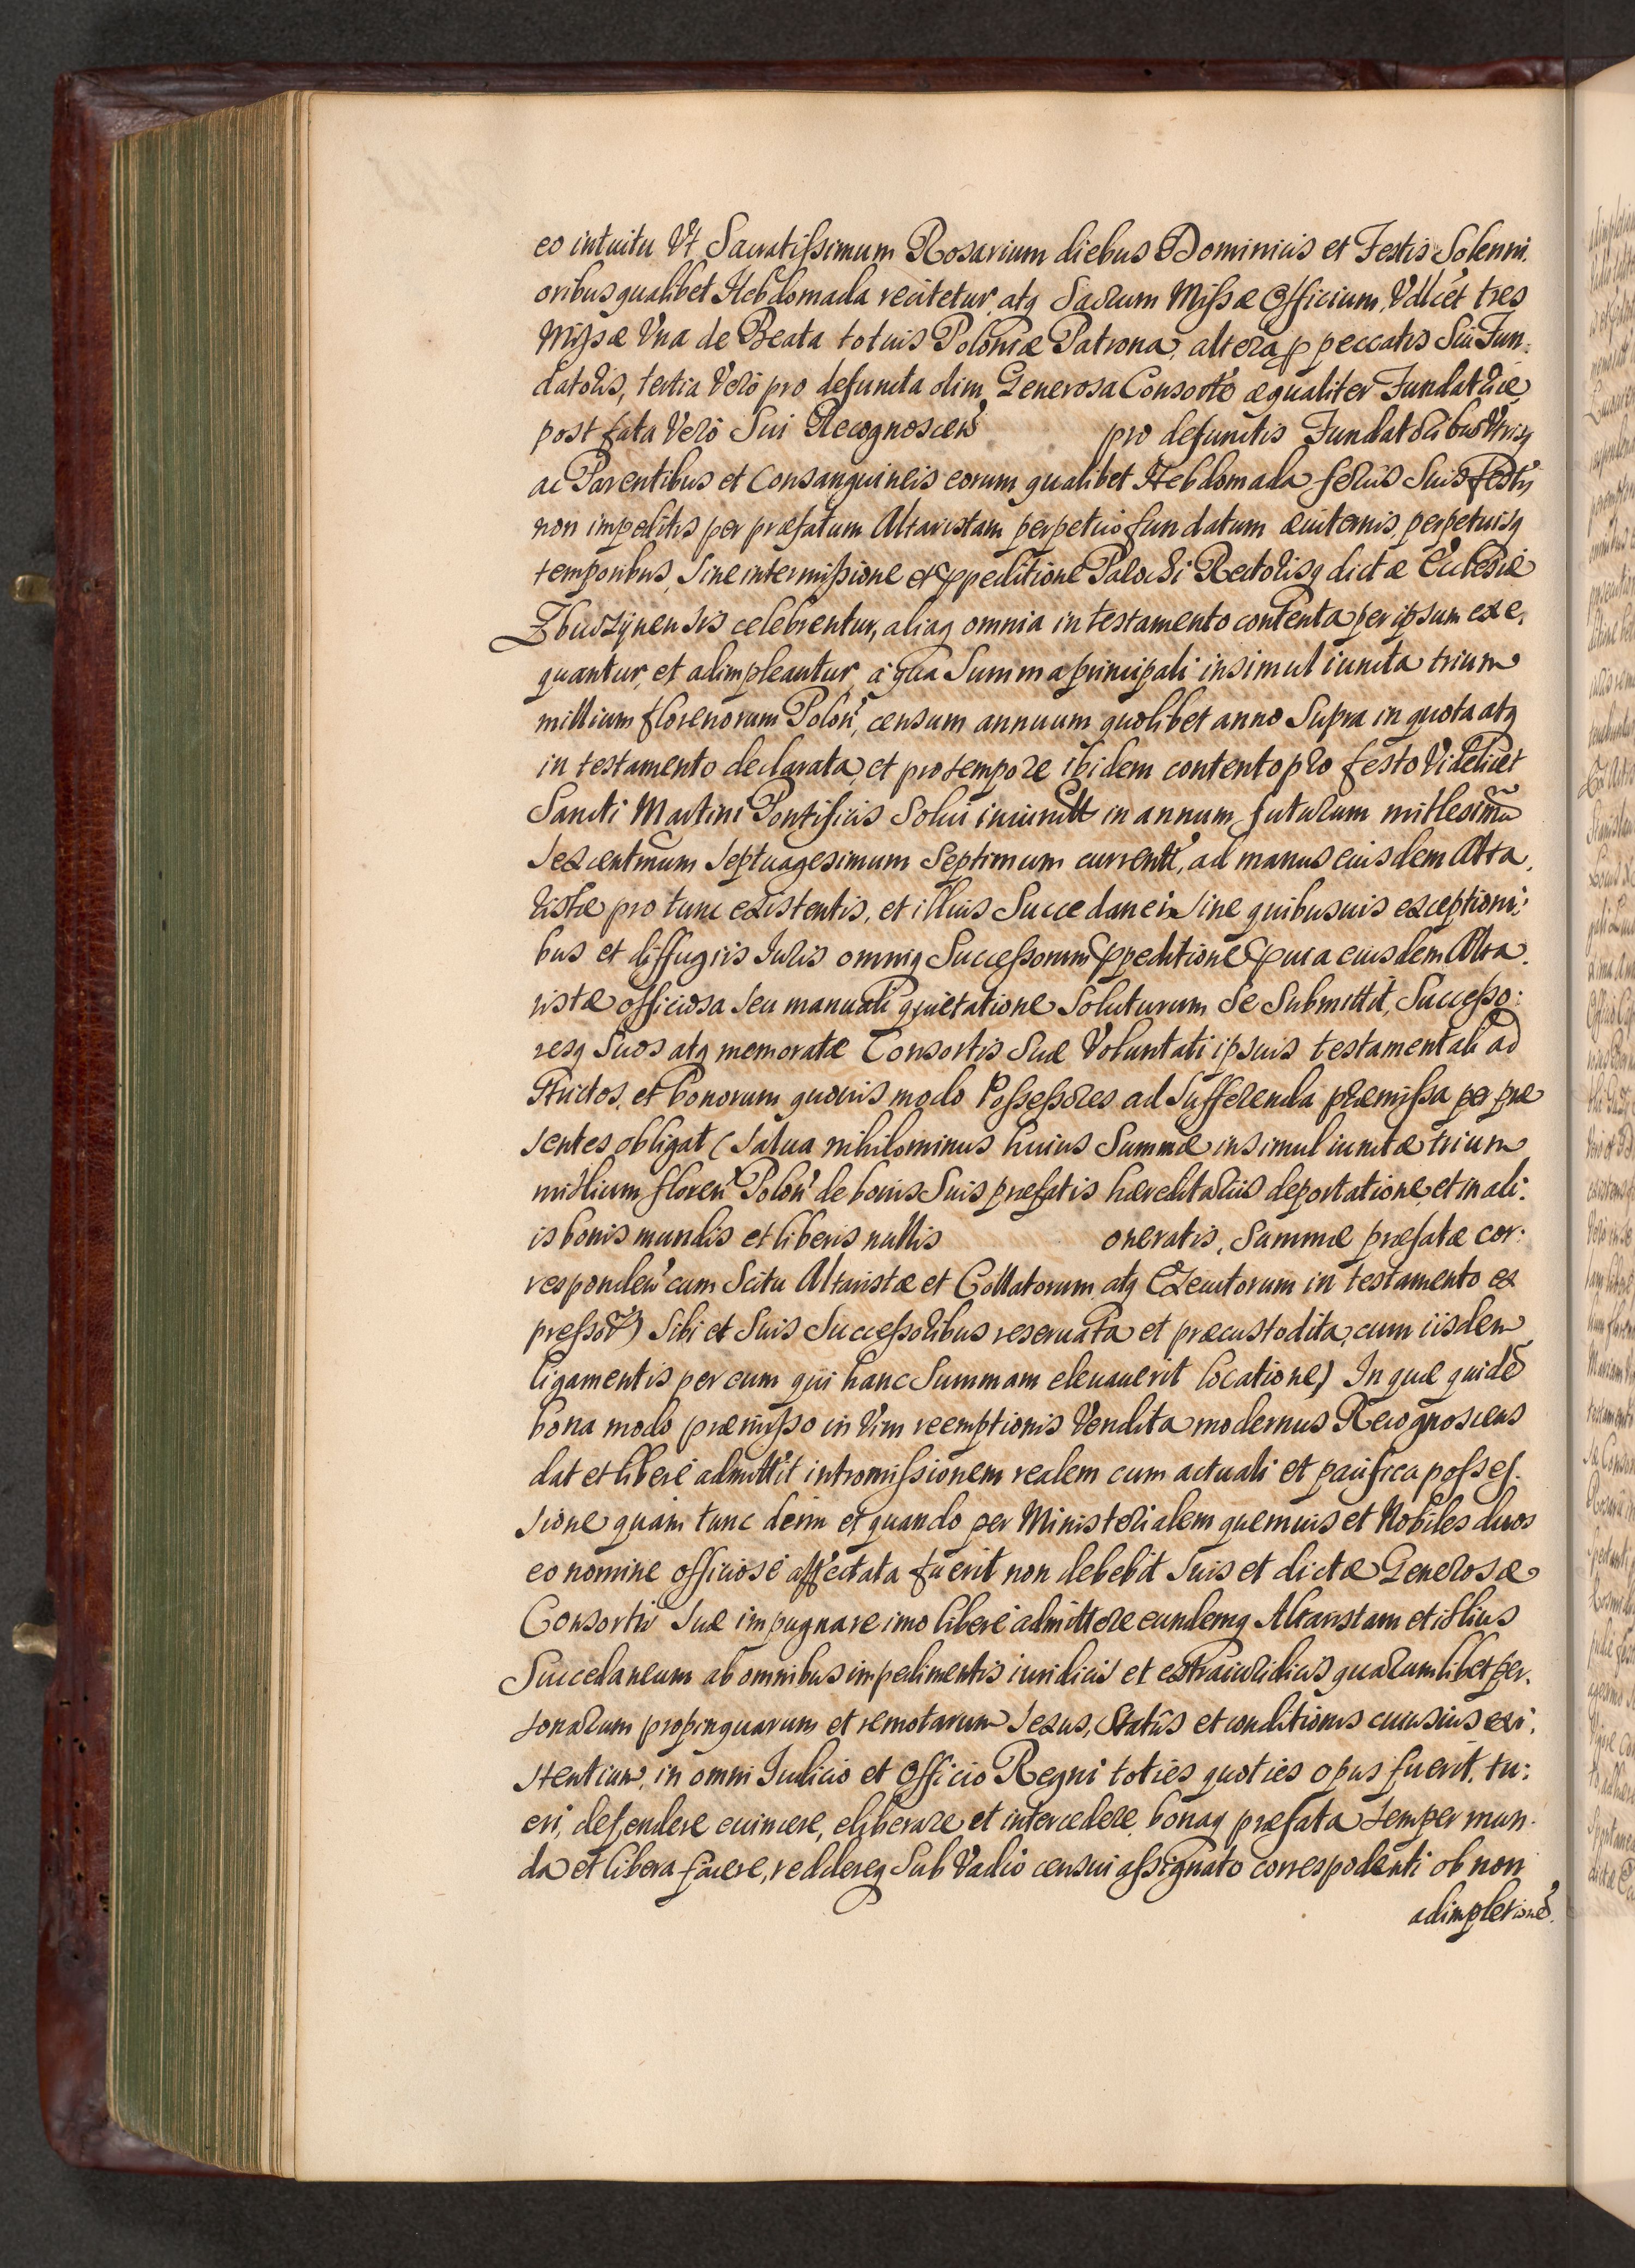 eo intuitu Vt Sacratissimum Rosarium diebus Dominicis et Festis Solenni.
oribus qualibet Hebdomada recitetur, atq Sacrum Missæ Officium, Vdlicet tres
Missæ Vna de Beata totius Poloniæ Patrona, altera p peccatis Sui Fun:
datoris, tertia Verò pro defuncta olim Generosa Consorte æqualiter Fundatrice
post fata Verò Sui Recognoscen pro defunctis Fundatoribus Vtrisq
ac Parentibus et Consanguineis eorum qualibet Hebdomada ferijs Suis Festis
non impeditis per præfatum Altaristam perpetuò fundatum æuiternis, perpetuisq
temporibus, Sine intermissione et Expeditione Parochi Rectorisq dictæ Ecclesiæ
Zbuczynensis celebrentur, aliaq omnia in testamento contenta per ipsum exe.
quantur, et adimpleantur, à qua Summa principali insimul iuncta trium
millium florenorum Polon, censum annuum quolibet anno Supra in quota atq
in testamento declarata, et pro tempore ibidem contento pro festo Videlicet
Sancti Martini Pontificis Solui in annum futurum millesimū
Sexcentmum Septuagesimum Septimum currentē, ad manus eiusdem Alta.
ristæ pro tunc existentis, et illius Succedanei Sine quibusuis exceptioni:
bus et diffugiis Iuris omniq Successorum Expeditione Cum a eiusdem Alta.
ristæ officiosa Seu manuali quietatione Soluturum Se Submittit, Successo:
resq Suos atq memoratæ Consortis Suæ Voluntati ipsius testamentali ad
strictos, et bonorum quouis modo Possessores ad Sufferenda præmissa per præ
sentes obligat (Salua nihilominus huius Summæ insimul iunctæ trium
millium floren Polon de bonis Suis præfatis hæreditariis deportatione, et in ali:
is bonis mundis et liberis nullis oneratis, Summæ præfatæ cor:
responden cum Scitu Altaristæ et Collatorum atq Executorum in testamento ex
pressor) Sibi et Suis Successoribus reseruata et præcustodita, cum iisdem
ligamentis per eum qui hanc Summam eleuauerit locatione) In quæ quidē
bona modo præmisso in Vim reemptionis Vendita modernus Recognoscens
dat et liberè admittit intromissionem realem cum actuali et pacifica posses.
sione quam tunc dum et quando per Ministerialem quemuis et Nobiles duos
eo nomine officiosè affectata fuerit non debebit Suis et dictæ Generosæ
Consortis Suæ impugnare imo liberè admittere eundemq Altaristam et illius
Succedaneum ab omnibus impedimentis iuridicis et extraiuridicis quarumlibet per.
sonarum propinquarum et remotarum Sexus, Statûs et conditionis cuiusuis exi.
stentium, in omni Iudicio et Officio Regni toties quoties opus fuerit, tu:
eri, defendere euincere, eliberare et intercedere, bonaq præfata Semper mun.
da et libera facere, reddereq Sub Vadio censui assignato correspodenti ob non
adimpletionē